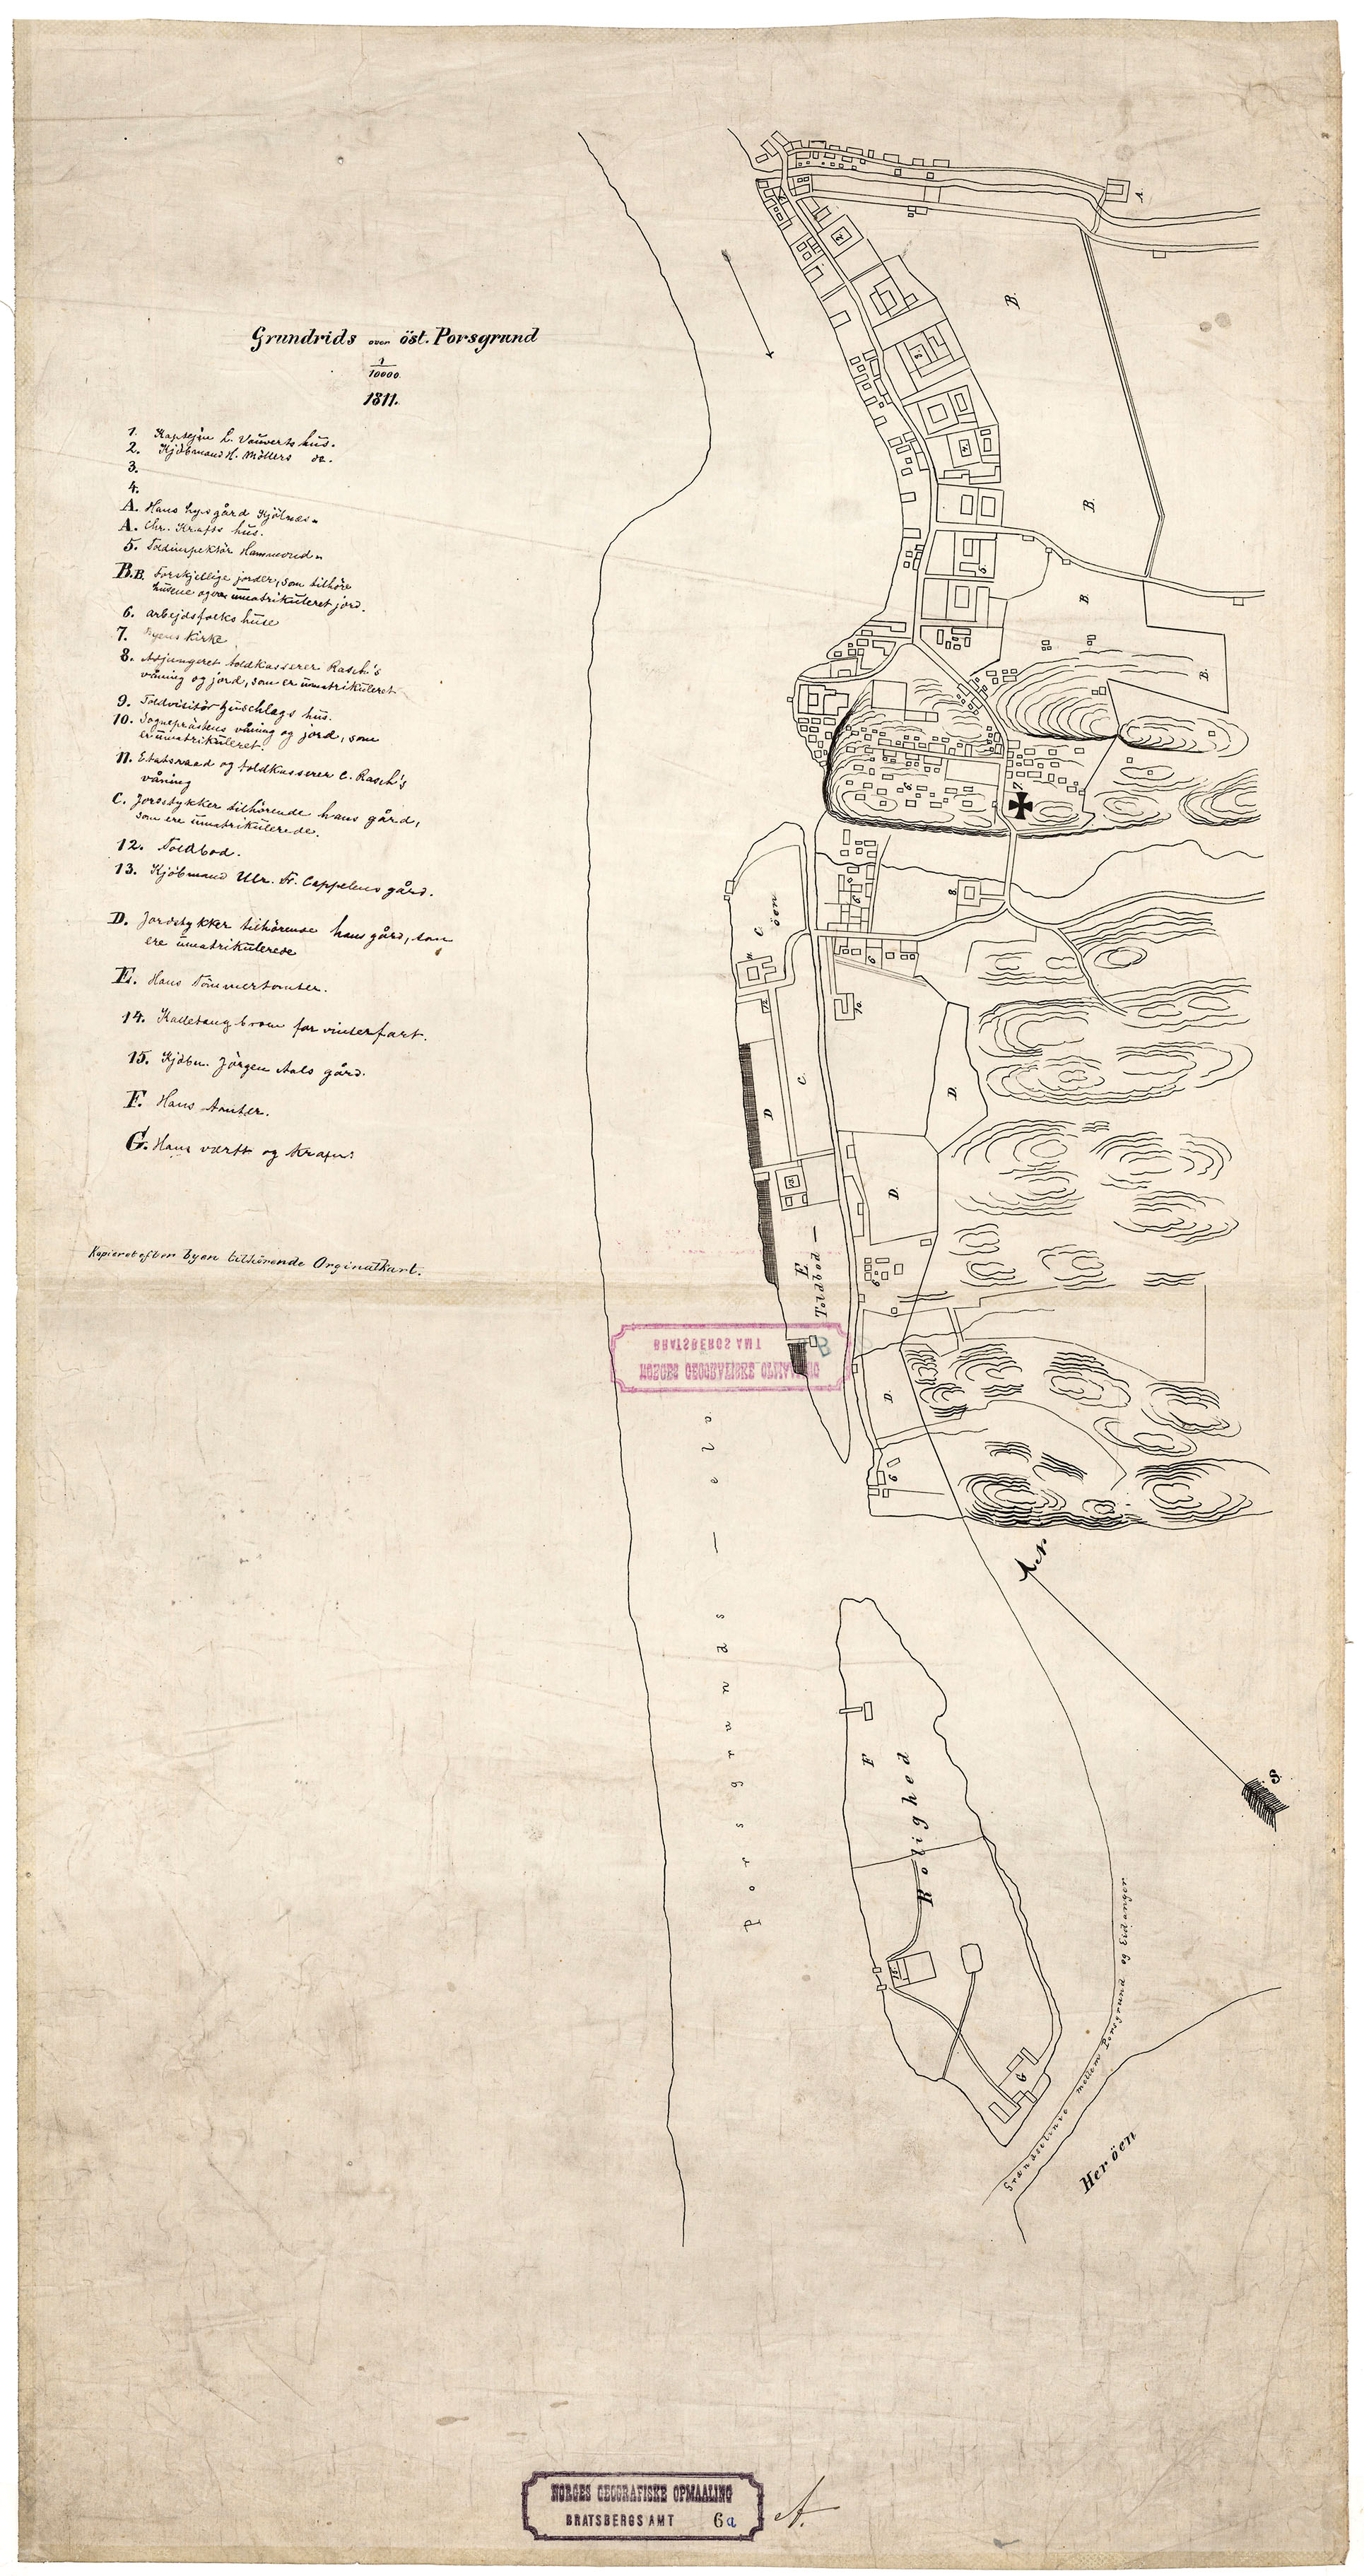 Grundrids over öst. Porsgrund
1
10000.
1811.
1. Kaptejn L. Vauverts hus.
2. Kjöbmand H. Möllers do.
3.
4.
A. Hans gård Kjölnæs
A. Chr. Krafts hus.
5. Toldinspektör Hammerud
B.B. Forskjellige jorder, som tilhöre
husene og umatrikuleret jord.
6. arbejdsfolks huse
7. Byens kirke
8. Adjungeret toldkasserer Rasch's
våning og jord, som er umatrikuleret
9. Toldvisitör hus.
10. Sogneprästens våning og jord, som
er umatrikuleret.
11. Etatsraad og toldkasserer C. Rasch's
våning
C. Jordstykker tilhörende hans gård,
som ere umatrikulerede.
12. Toldbod.
13. Kjöbmand Ulr. Fr. Cappelens gård.
D. Jordstykker tilhörende hans gård, som
ere umatrikulerede
E. Hans Tömmertomter.
14. for vinterfart.
15. Kjöbm. Jörgen Aals gård.
F. Hans
G. Hans værft og
Kopieret efter byen tilhörende Orginalkart.
A.
B.
B.
B
B.
2.
5
6
7
8
6
6
C.
öen
10.
12.
C.
D
D.
D.
13
E
Toldbod —
6
BRATSBERGS AMT
NORGES GEOGRAFISKE OPMAALING
B
D.
6
Porsgrunds — elv.
N.
S.
F
Rolighed
15.
G
Grændselinie mellem Porsgrund og Eidanger
Heröen
NORGES GEOGRAFISKE OPMAALING
BRATSBERGS AMT 6a
A.